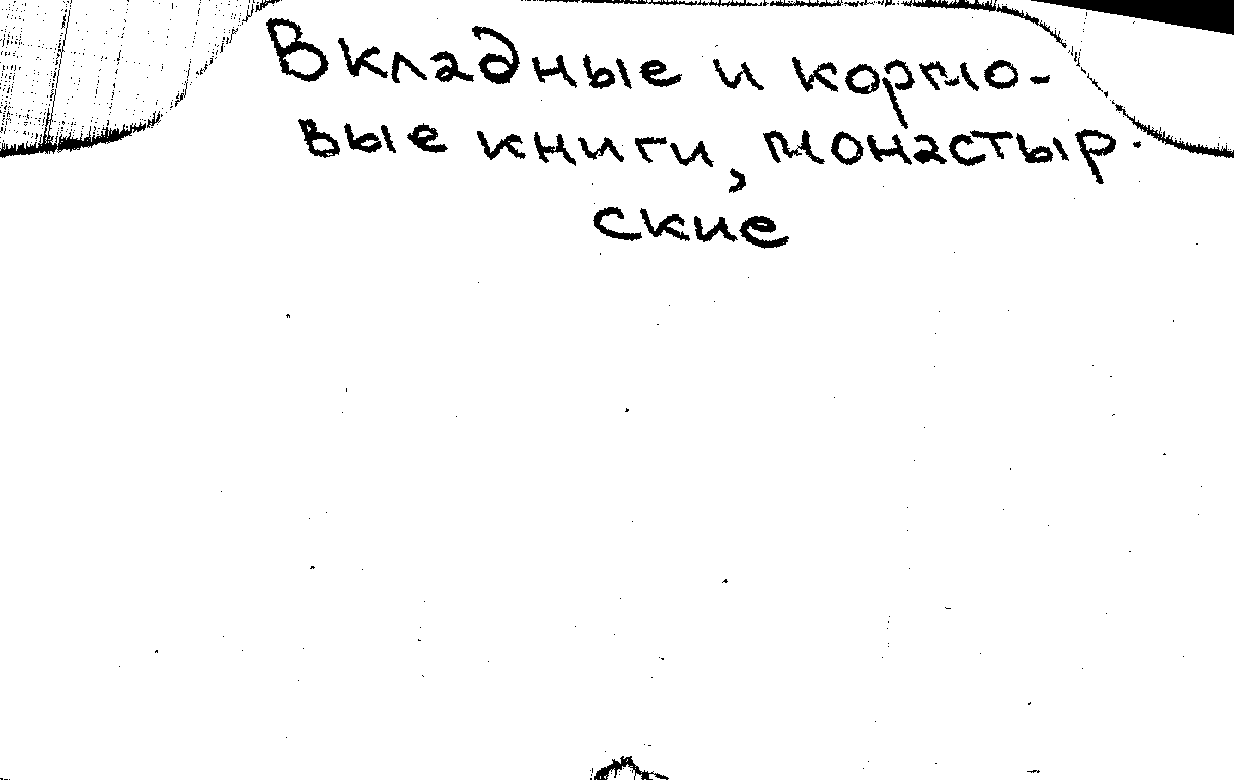 Вкладные и кормо-
вые книги, монастыр-
ские